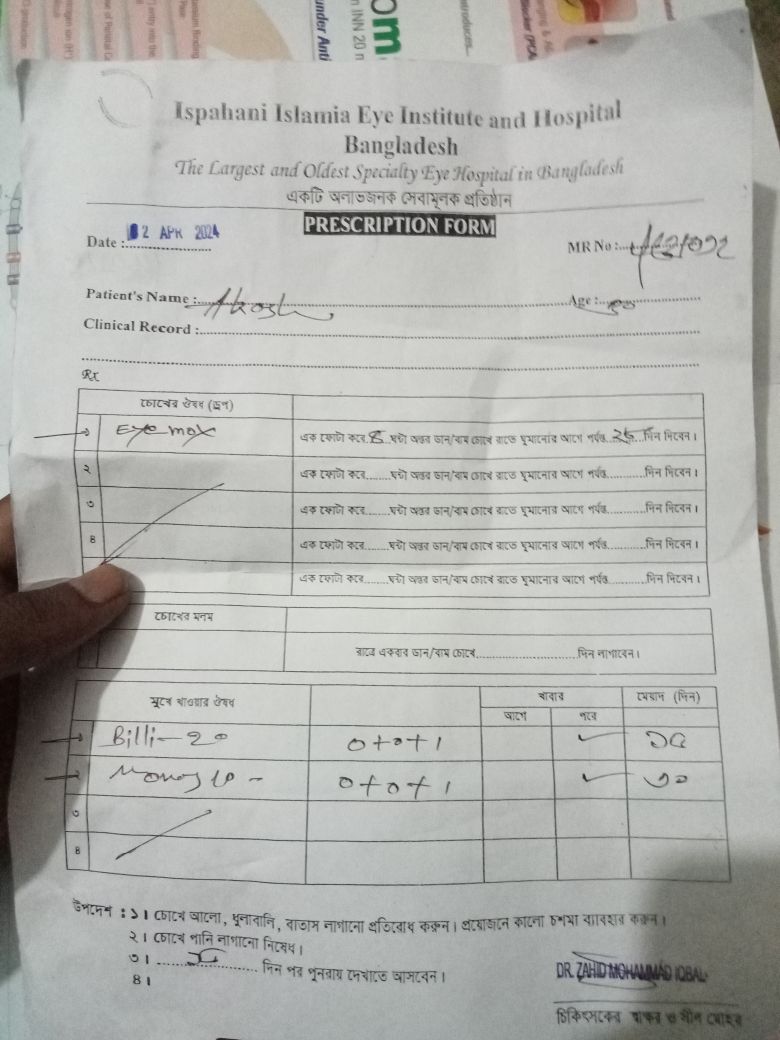 Ispahani Islamia Eye Institute and Hospital
Bangladesh
The Largest and Oldest Specialty Eye Hospital in Bangladesh
একটি অলাভজনক সেবামূলক প্রতিষ্ঠান
PRESCRIPTION FORM
Date : 2 APR 2024
MR No :
Patient's Name : Akash Age :
Clinical Record :
Rx
চোখের ঔষধ (ড্রপ)
Eyemox এক ফোটা করে ঘন্টা অন্তর ডান/বাম চোখে রাতে ঘুমানোর আগে পর্যন্ত দিন দিবেন।
২ এক ফোটা করে........ঘন্টা অন্তর ডান/বাম চোখে রাতে ঘুমানোর আগে পর্যন্ত............দিন দিবেন।
৩ এক ফোটা করে........ঘন্টা অন্তর ডান/বাম চোখে রাতে ঘুমানোর আগে পর্যন্ত............দিন দিবেন।
৪ এক ফোটা করে........ঘন্টা অন্তর ডান/বাম চোখে রাতে ঘুমানোর আগে পর্যন্ত............দিন দিবেন।
এক ফোটা করে........ঘন্টা অন্তর ডান/বাম চোখে রাতে ঘুমানোর আগে পর্যন্ত............দিন দিবেন।
চোখের মলম
রাতে একবার ডান/বাম চোখে..............................দিন লাগাবেন।
মুখে খাওয়ার ঔষধ খাবার মেয়াদ (দিন)
আগে পরে
Billi-20 0+0+1 ✓ ১৫
10 - 0+0+1 ✓ ৩০
৩
৪
উপদেশ : ১। চোখে আলো, ধুলাবালি, বাতাস লাগানো প্রতিরোধ করুন। প্রয়োজনে কালো চশমা ব্যবহার করুন।
২। চোখে পানি লাগানো নিষেধ।
৩। ............................ দিন পর পুনরায় দেখাতে আসবেন।
৪।
DR. ZAHID MOHAMMAD IQBAL
চিকিৎসকের স্বাক্ষর ও সীল মোহর